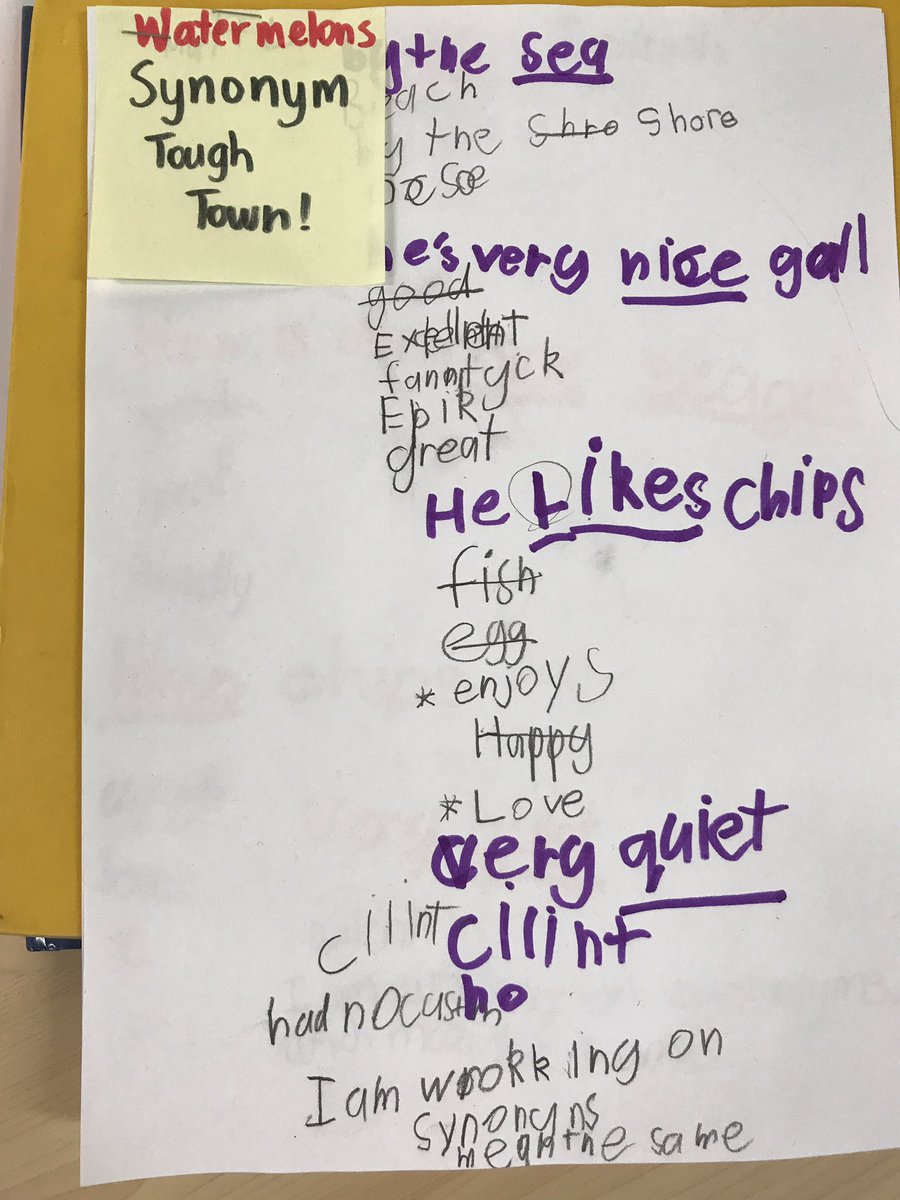 Watermelons
Synonym
Tough
Town!
y the sea
each
y the Shro Shore
he's very nice gall
good
Expellent
fantyck
EpiK
great
He Likes chips
fish
egg
* enjoys
Happy
* Love
very quiet
cllint cllint
ho
had no
I am wrokking on
synonyns
mean the same